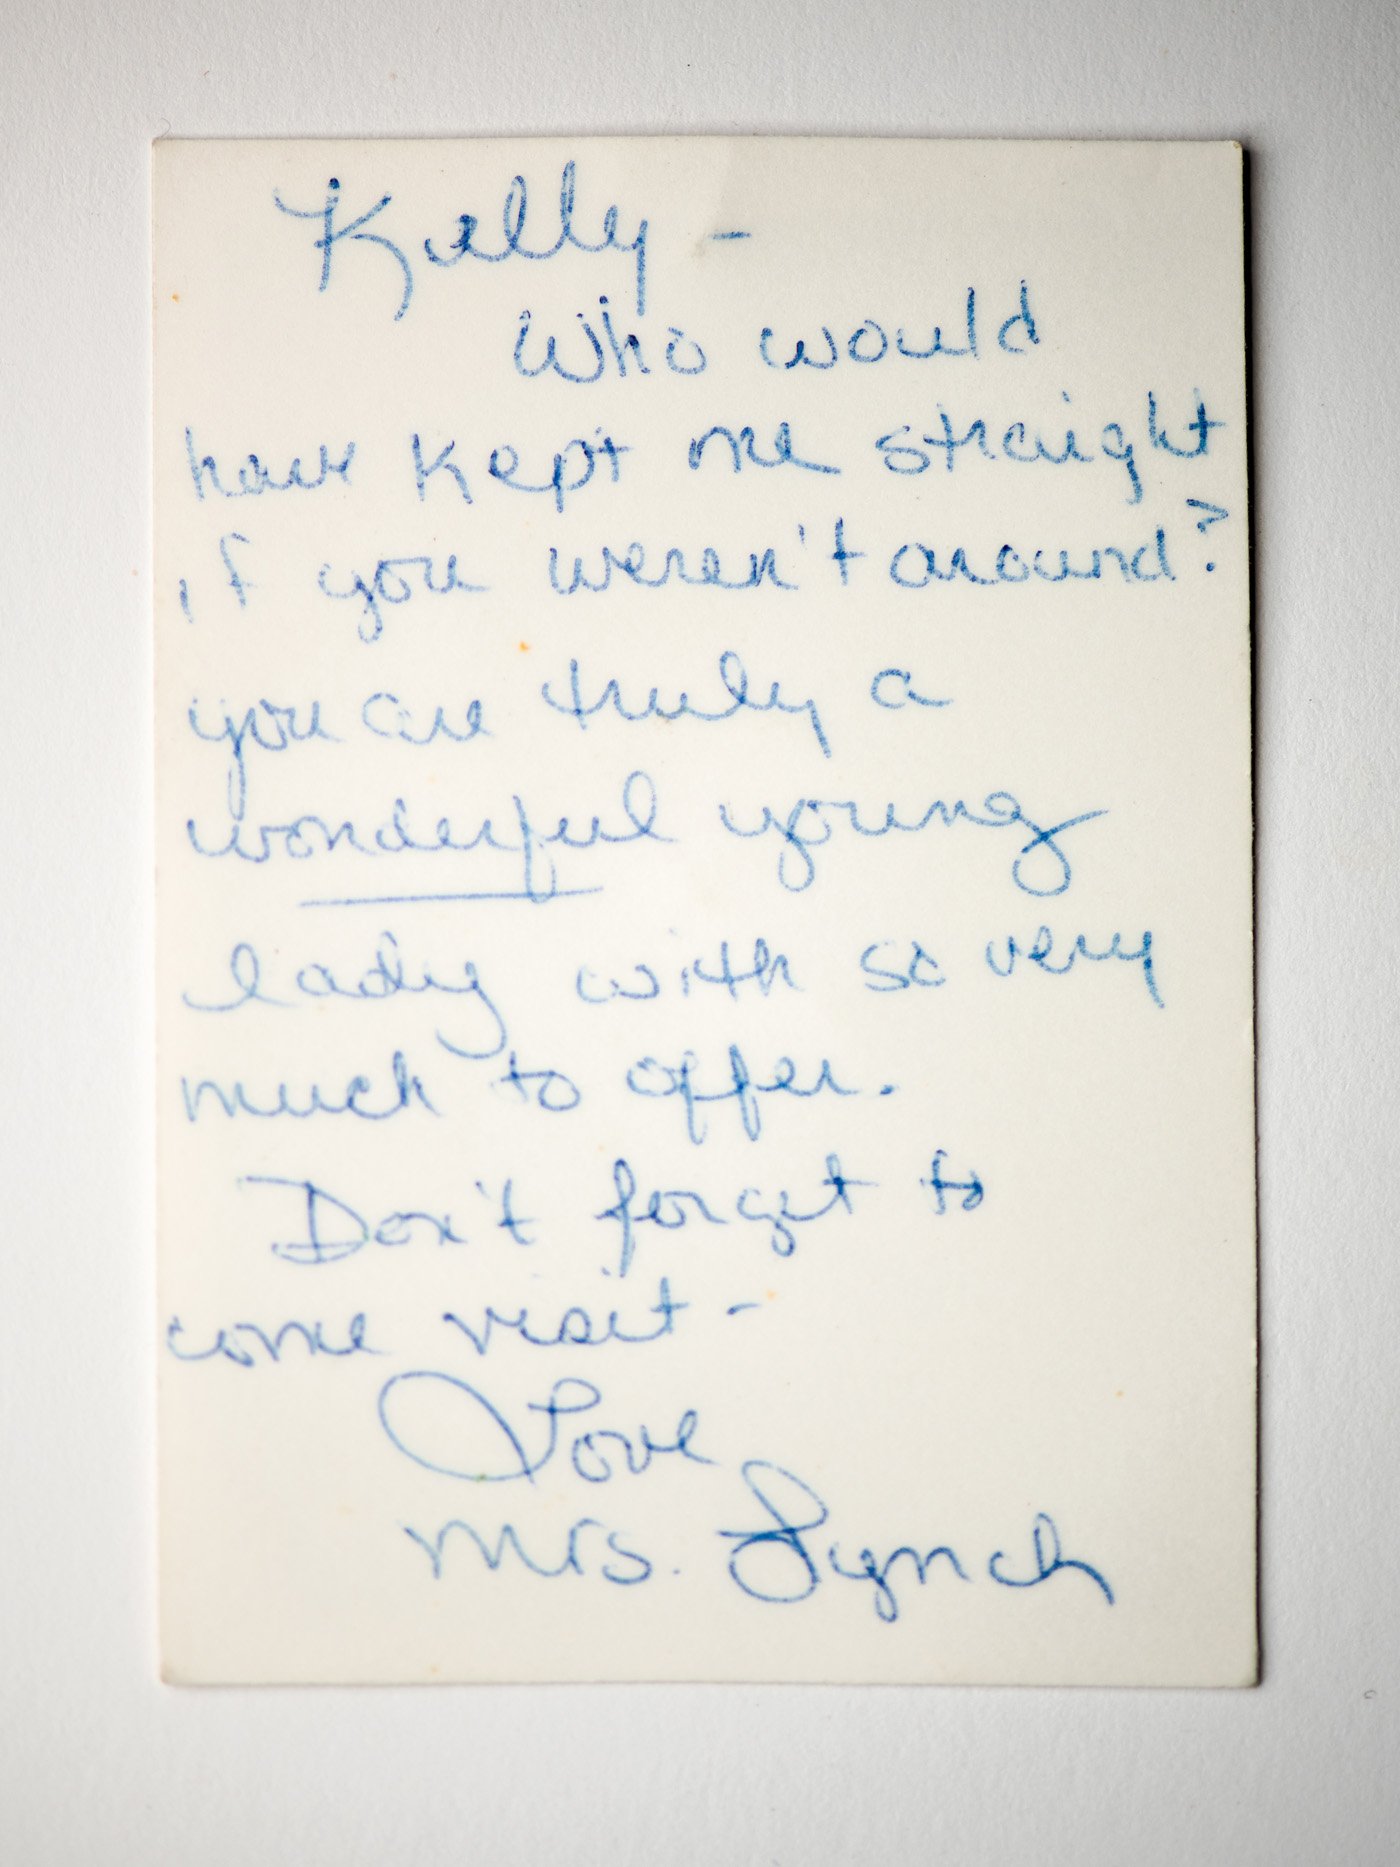 Kelly -
Who would
have kept me straight
if you weren't around?
you are truly a
wonderful young
lady with so very
much to offer.
Don't forget to
come visit -
Love
Mrs. Lynch